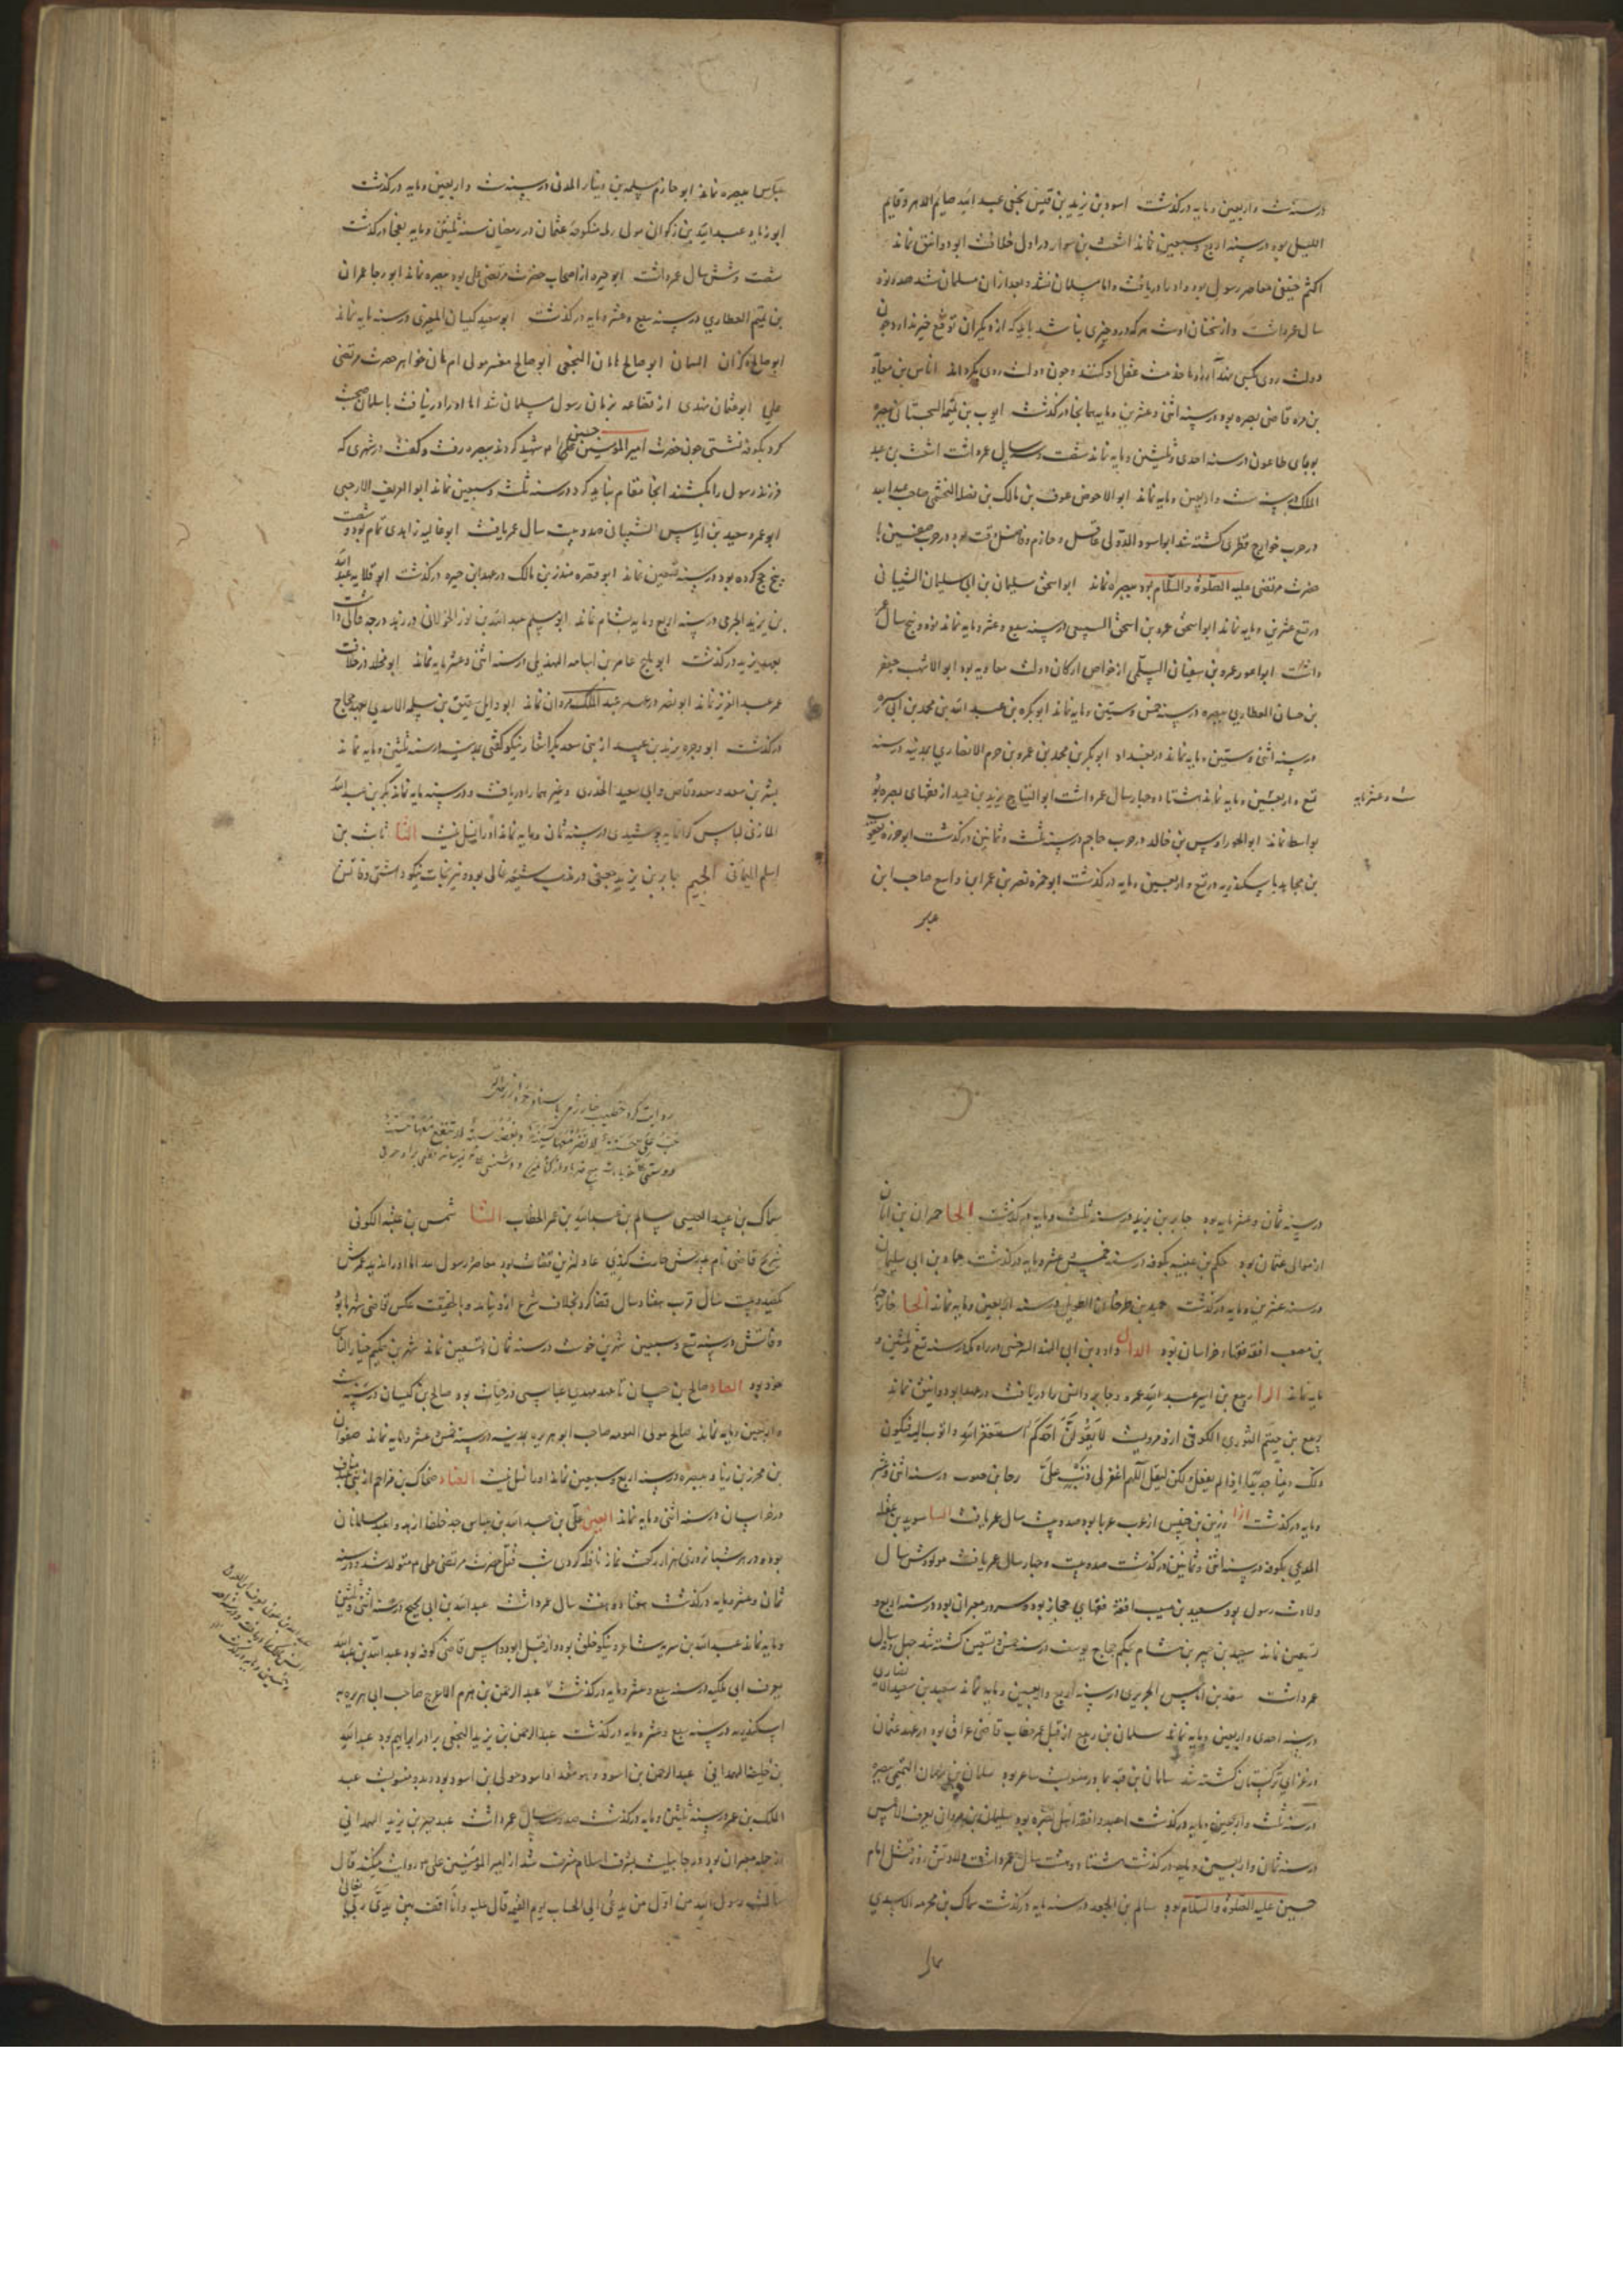 درسنه ست واربعین ومایه درکذشت اسود بن زید بن قیس نخعی عبد الله صایم الدهر وقایم
اللیل بود درسنه اربع وسبعین نماند اشعث بن سوار در اول خلافت ابو دوانق نماند
اکثم صیفی معاصر رسول بود واو را دریافت واما مسلمان نشد وبعد ازان مسلمان شد صد ونود
سال عمر داشت واز سخنان اوست هرکه درو خیری نباشد باید که از دیکران توقع خیر ندارد وچون
دولت روی بکسی نهد آرزوها خدمت عقل او کنند وچون دولت روی بکرداند ایاس بن معاویه
بن مره قاضی بصره بود درسنه اثنی وعشرین ومایه بمانجا درکذشت ایوب بن تمیمة السجستانی ببصره
بوبای طاعون درسنه احدی وثلثین ومایه نماند شصت وسه سال عمر داشت اشعث بن عبد
الملک درسنه ست واربعین ومایه نماند ابو الاحوص عوف بن مالک بن نضلة الجشمی صاحب عبد الله
درحرب خوارج قطری کشته شد ابو اسود الدولی عاقل وحازم وفاضل وقت بود ودرحرب صفین با
حضرت مرتضی علیه الصلوة والسلام بود ببصره نماند ابو اسحق سلیمان بن ابی سلیمان الشیبانی
در تسع عشرین ومایه نماند ابو اسحق عمرو بن اسحق السبیعی درسنه سبع وعشر ومایه نماند نود وپنج سال عمر
داشت ابو اعور عمرو بن سفیان السلمی از خواص ارکان دولت معاویه بود ابو الاشهب جعفر
بن حسان العطاردی ببصره درسنه خمس وستین ومایه نماند ابو بکره بن عبد الله بن محمد بن ابی سبره
درسنه اثنی وستین ومایه نماند دربغداد ابو بکر بن محمد بن عمرو بن حزم الانصاری بمدینه درسنه
تسع واربعین ومایه نماند هشتاد وچهار سال عمر داشت ابو التیاح یزید بن حمید از فقهای بصره بود
ست وعشر مایه
بواسط نماند ابو الجوزا اوس بن خالد درحرب جاجم درسنه ثلث وثمانین درکذشت ابو حزره یعقوب
بن مجاهد باسکندریه درتسع واربعین ومایه درکذشت ابو حمزه نصر بن عمران واسع صاحب ابن
عباس ببصره نماند ابو حازم سلمه بن دینار المدنی درسنه ست واربعین ومایه درکذشت
ابو زناد عبد الله بن ذکوان مولی رمله منکوحه عثمان در رمضان سنه ثلثین ومایه بفجا درکذشت
شصت وشش سال عمر داشت ابو حیره از اصحاب حضرت مرتضی علی بود ببصره نماند ابو رجا عمران
بن تیم العطاردی درسنه سبع وعشر ومایه درکذشت ابو سعید کیسان المقبری درسنه مایه نماند
ابو صالح ذکوان السمان ابو صالح ماهان النخعی ابو صالح مفسر مولی ام هانی خواهر حضرت مرتضی
علی ابو عثمان نهدی از قضاعه بزمان رسول مسلمان شد اما او را درنیافت باسلمان صحبت
کرد بکوفه نشستی چون حضرت امیر المومنین حسین علی را شهید کردند ببصره رفت وکفت درشهری که
فرزند رسول را بکشند انجا مقام نباید کرد درسنه ثلث وسبعین نماند ابو العریف الارحبی
ابو عمرو سعید بن ایاس الشیبانی صد وبیست سال عمر یافت ابو عالیه زاهدی تمام بود وشصت
وپنج حج کرده بود درسنه تسعین نماند ابو نضره منذر بن مالک درعهد ابن هبیره درکذشت ابو قلابه عبد الله
بن یزید الجرمی درسنه اربع ومایه بشام نماند ابو مسلم عبد الله بن ثوب الخولانی در زهد درجه عالی داشت
بعهد یزید درکذشت ابو ملیح عامر بن اسامه الهذیلی درسنه اثنی وعشر مایه نماند ابو مجلد درخلافت
عمر عبد العزیز نماند ابو نضر درعهد عبد الملک مروان نماند ابو وایل شقیق بن سلمه الاسدی بعهد حجاج
درکذشت ابو وجزه یزید بن عبید از بنی سعد بکر اشعار نیکو کفتی بمدینه درسنه ثلثین ومایه نماند
بشر بن سعد وسعد وقاص وابی سعید الخدری وغیرهما را دریافت ودرسنه مایه نماند بکر بن عبد الله
المازنی لباس کرانمایه پوشیدی درسنه ثمان ومایه نماند او را نسل نیست الثا ثابت بن
اسلم البنانی الجیم جابر بن یزید جعفی درمذهب شیعه غالی بود ونیرنجات نیکو داشتی وفاتش
درسنه ثمان وعشر مایه بود جابر بن یزید درسنه ثلث ومایه درکذشت الحا حمران بن ابان
ازموالی عثمان بود حکم بن عتیبه بکوفه درسنه خمس عشر ومایه درکذشت حماد بن ابی سلیمان
درسنه عشرین ومایه درکذشت حمید بن طرخان الطویل درسنه اربعین ومایه نماند الخا خارجه
بن مصعب افقه فقهاء خراسان بود الدال داود بن ابی الهند السرخسی درراه مکه درسنه تسع وثلثین و
مایه نماند الرا ربیع بن انس عبد الله عمر وجابر وانس را دریافت درعهد ابو دوانیق نماند
ربیع بن خیثم الثوری الکوفی ازو مرویست لا یقولن احدکم استغفر الله واتوب الیه فیکون
ذلک ذنبا جدیدا اذا لم یفعل ولکن لیقل اللهم اغفر لی وتب علی رجا بن حیوه درسنه اثنی وعشر
ومایه درکذشت الزا زر بن حبیش از عرب عربا بود صد وبیست سال عمر یافت السا سوید بن غفله
المدحجی بکوفه درسنه اثنی وثمانین درکذشت صد وبیست وچهار سال عمر یافت مولودش سال
ولادت رسول بود سعید بن مسیب افقه فقهای حجاز بوده وسرور معبران بود درسنه اربع و
تسعین نماند سعید بن جبیر بن هشام بحکم حجاج یوسف درسنه خمس وتسعین کشته شد چهل ونه سال
عمر داشت سعد بن ایاس الجریری درسنه اربع واربعین ومایه نماند سعید بن سعید الانصاری
درسنه احدی واربعین ومایه نماند سلمان بن ربیع از قبل عمر خطاب قاضی عراق بود درعهد عثمان
درغزای ترکستان کشته شد سلیمان التیمی ببصره
درسنه ثلث واربعین ومایه درکذشت اعبد وافقه اهل بصره بود سلیمان بن مهران یعرف الاعمش
درسنه ثمان واربعین ومایه درکذشت هشتاد وهشت سال عمر داشت ولادتش روز قتل امام
حسین علیه الصلوة والسلام بود سالم بن ابی الجعد درسنه مایه درکذشت سماک بن مخرمه الاسدی
سماک
روایت کرد خطیب خوارزمی
حب علی حسنة لا تضر معها سیئة وبغضه سیئة لا تنفع معها حسنة
سماک بن عبید العبسی سالم بن عبد الله بن عمر الخطاب الشا شمس بن عقبه الکوفی
شریح قاضی نام پدرش حارث کندی عادل ترین قضات بود معاصر رسول بود اما او را ندید عمرش
یکصد وبیست سال قرب هفتاد سال قضا کرد بخلاف شرع ازو نیامد وبالحقیقت عکس قاضی شهر ما بود
وفاتش درسنه تسع وسبعین شهر بن حوشب درسنه ثمان وتسعین نماند شهر بن حکیم خیار الناس
خود بود الصاد صالح بن حسان تا عهد مهدی عباسی درحیات بود صالح بن کیسان درسنه ست
واربعین ومایه نماند صالح مولی التومه صاحب ابو هریره بمدینه درسنه خمس عشر ومایه نماند صفوان
بن محرز بن زیاد ببصره درسنه اربع وسبعین نماند او را نسل نیست الضاد ضحاک بن مزاحم از بنی عبد مناف
درخراسان درسنه اثنی ومایه نماند العین علی بن عبد الله بن عباس جد خلفا ازهد واعبد مسلمانان
بوده ودر هر شبانروزی هزار رکعت نماز نافله کردی شب قتل حضرت مرتضی علی متولد شد ودرسنه
ثمان وعشر ومایه درکذشت هفتاد وهفت سال عمر داشت عبد الله بن ابی نجیح درسنه اثنی وثلثین
ومایه نماند عبد الله بن شبرمه شاعر ونیکو خلق بوده واز قبل ابو دوانیق قاضی کوفه بود عبد الله بن عبید الله
یعرف ابی ملیکه درسنه سبع وعشر ومایه درکذشت عبد الرحمن بن هرمز الاعرج صاحب ابی هریره به
اسکندریه درسنه سبع وعشر ومایه درکذشت عبد الرحمن بن یزید النخعی برادر ابراهیم بود عبد الله
بن خلیفه الهمدانی عبد الرحمن بن اسود
الملک بن عمیر درسنه ثلثین ومایه درکذشت صد وسه سال عمر داشت عبد خیر بن یزید الهمدانی
از جمله معمران بود درجاهلیت بشرف اسلام مشرف شد از امیر المومنین علی روایت میکند قال
سالت رسول الله من اول من یدعی الی الحساب یوم القیمة قال علیه وانا اقف بین یدی ربی تعالی